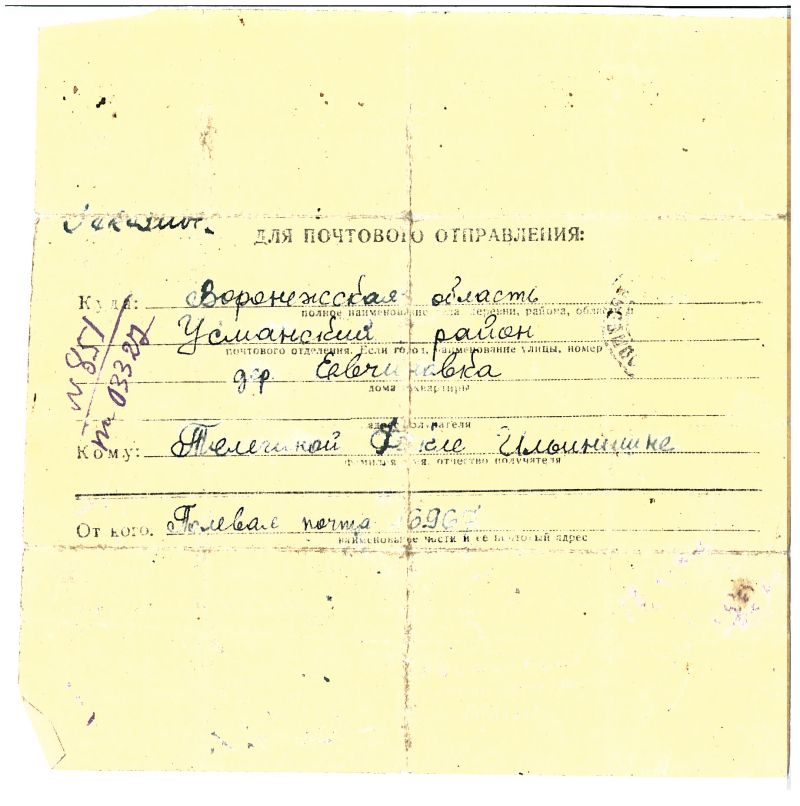 ДЛЯ ПОЧТОВОГО ОТПРАВЛЕНИЯ:
Куда: Воронежсская область
полное наименование села деревни, района, области и
Усманский район
почтового отделения. Если город, наименование улицы, номер
дер Евчиновка
дома квартиры
адрес получателя
Кому: Телегиной Фёкле Ильинишне
фамилия имя, отчество получателя
От кого. Полевая почта 06967
наименование части и её почтовый адрес
N 851
на 03327